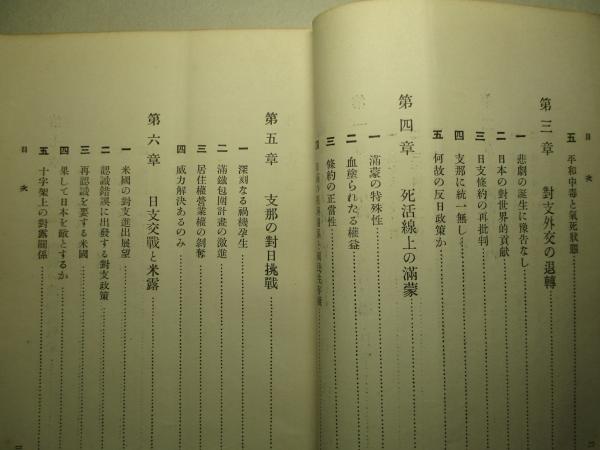 目次
五 平和中毒と氣死狀態
第三章 對支外交の退轉
一 悲劇の誕生に豫告なし
二 日本の對世界的貢獻
三 日支條約の再批判
四 支那に統一無し
五 何故の反日政策か
第四章 死活線上の滿蒙
一 滿蒙の特殊性
二 血塗られたる權益
三 條約の正當性
第五章 支那の對日挑戰
一 深刻なる禍機孕生
二 滿鐵包圍計畫の激進
三 居住權營業權の剝奪
四 威力解決あるのみ
第六章 日支交戰と米露
一 米國の對支進出展望
二 認識錯誤に出發する對支政策
三 再認識を要する米國
四 果して日本を敵とするか
五 十字架上の對露關係
目次